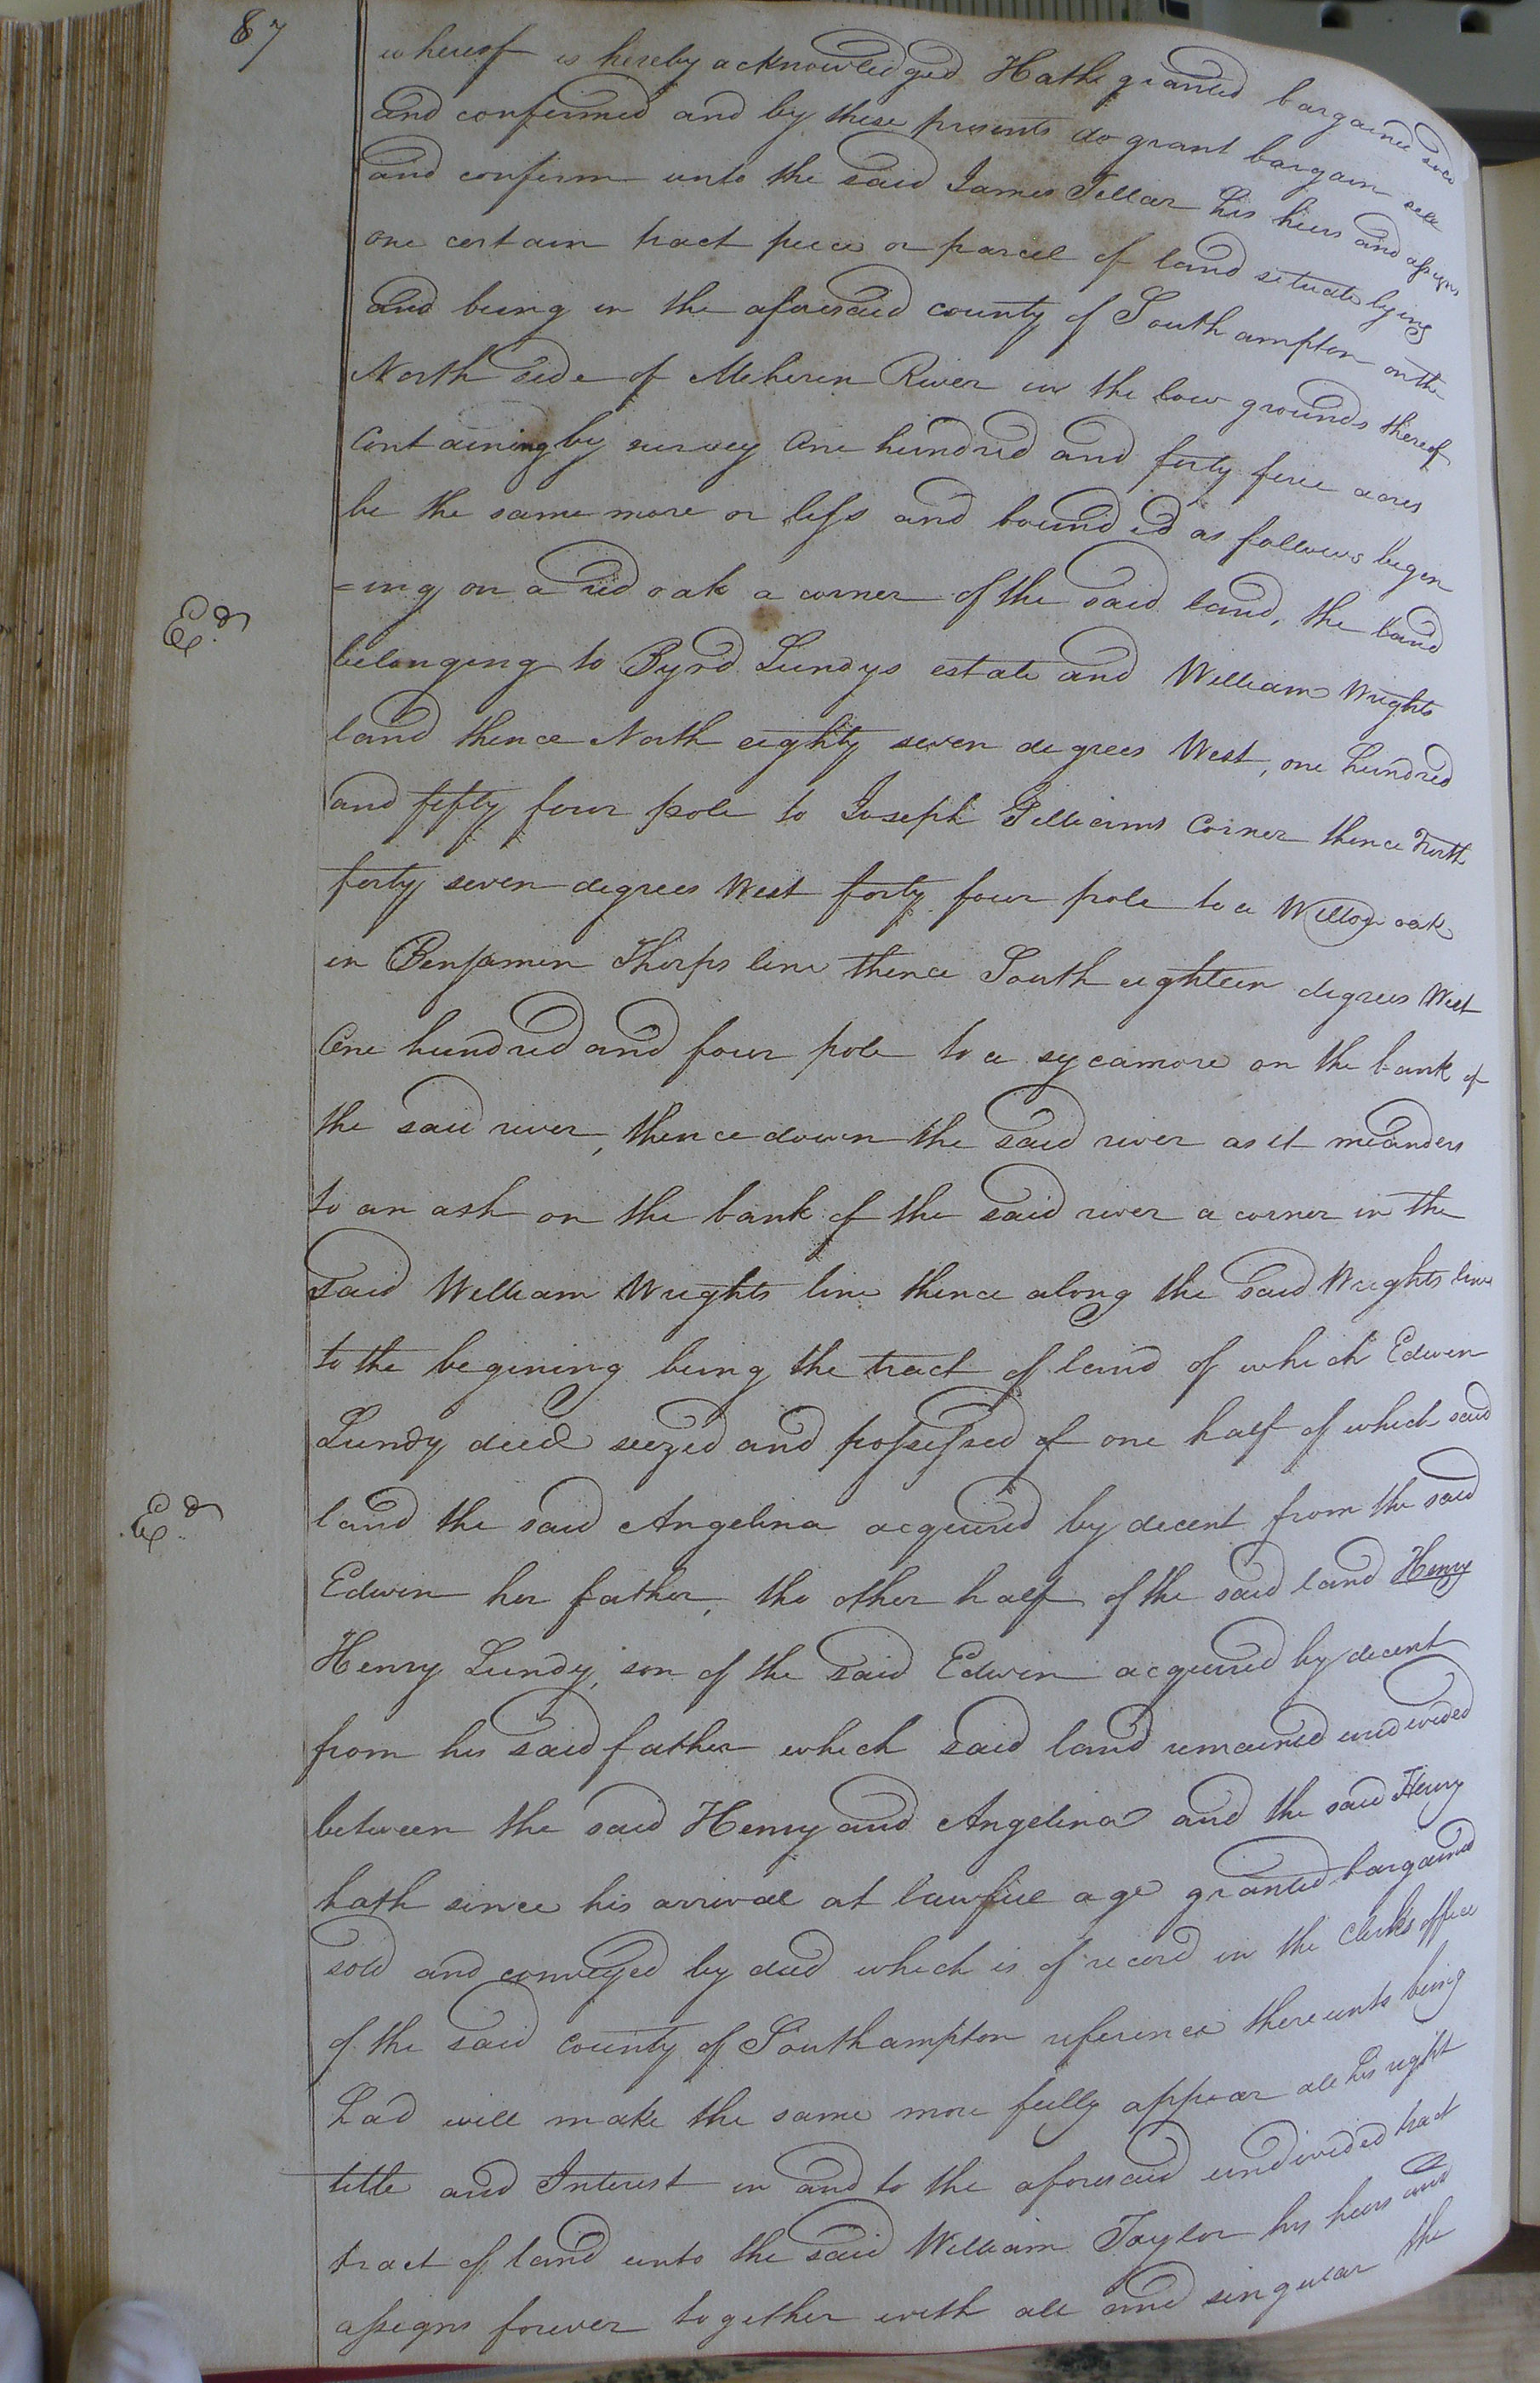 87
whereof is hereby acknowledged Hath granted bargained sold
and confirmed and by these presents do grant bargain sell
and confirm unto the said James Tellar his heirs and assigns
one certain tract piece or parcel of land situate lying
and being in the aforesaid county of Southampton on the
North side of Meherin River in the low grounds thereof
containing by survey One hundred and forty five acres
be the same more or less and bounded as follows begin
=ing on a red oak a corner of the said land, the land
belonging to Byrd Lundys estate and William Wrights
land thence North eighty seven degrees West, one hundred
and fifty four pole to Joseph Gilliams Corner thence North
forty seven degrees West forty four pole to a Willow oak
in Benjamin Thorps line thence South eighteen degrees West
One hundred and four pole to a sycamore on the bank of
the said river, thence down the said river as it meanders
to an ash on the bank of the said river a corner in the
said William Wrights line thence along the said Wrights line
to the begining being the tract of land of which Edwin
Lundy died seized and possessed of one half of which said
land the said Angelina acquired by decent from the said
Edwin her father, the other half of the said land Henry
Henry Lundy, son of the said Edwin acquired by decent
from his said father which said land remained undivided
between the said Henry and Angelina and the said Henry
hath since his arrival at lawfull age granted bargained
sold and conveyed by deed which is of record in the Clerks office
of the said county of Southampton reference thereunto being
had will make the same more fully appear all his right
title and Interest in and to the aforesaid undivided tract
tract of land unto the said William Taylor his heirs and
assigns forever together with all and singular the
Ed.
Ed.